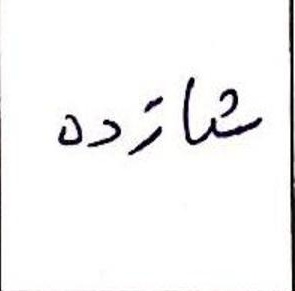 شانزده